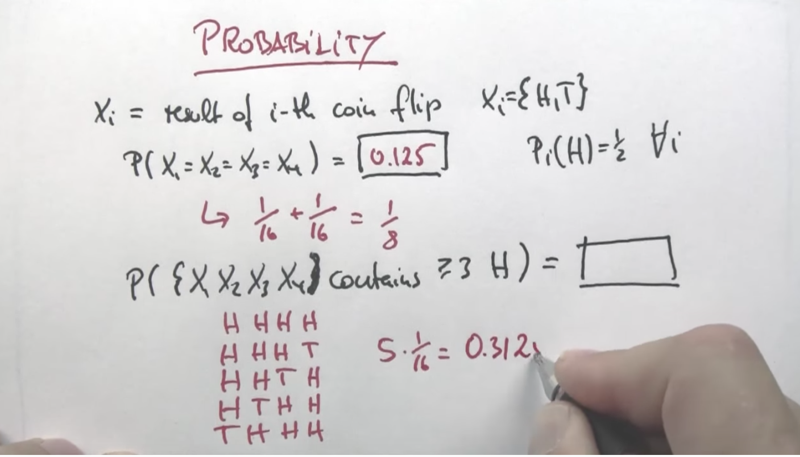 PROBABiLiTY
Xi = result of i-th coin flip Xi={H,T}
P(X1=X2=X3=X4) = 0.125 Pi(H)=½ ∀i
↳ 1/16 + 1/16 = 1/8
P({X X2 X3 X4} contains ≥3 H) =
H H H H
H H H T 5·1/16 = 0.312
H H T H
H T H H
T H H H